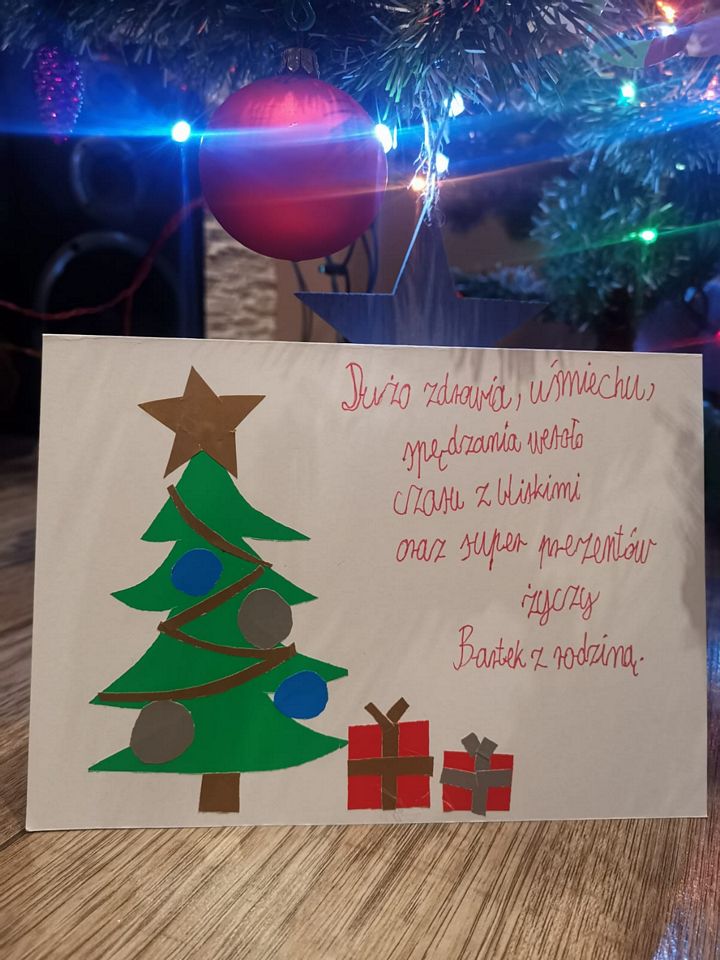 Dużo zdrowia, uśmiechu,
spędzania wesoło
czasu z bliskimi
oraz super prezentów
życzy
Bartek z rodziną.